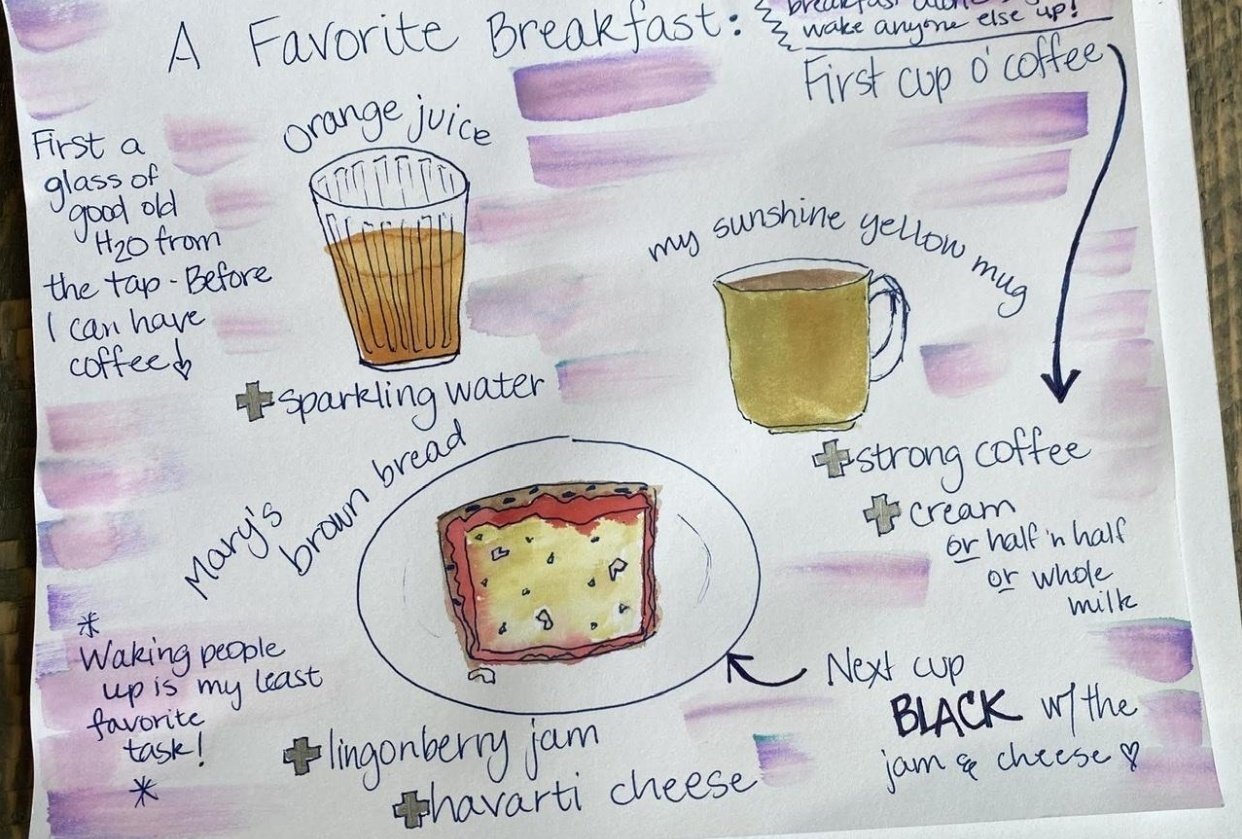 A Favorite Breakfast:
breakfast alone
wake anyone else up!
First cup o' coffee
First a
glass of
good old
H2O from
the tap - Before
I can have
coffee!
orange juice
+ sparkling water
my sunshine yellow mug
+ strong coffee
+ cream
or half 'n half
or whole
milk
Mary's
brown bread
*
Waking people
up is my least
favorite
task!
*
+ lingonberry jam
+ havarti cheese
Next cup
BLACK w/ the
jam & cheese ♡